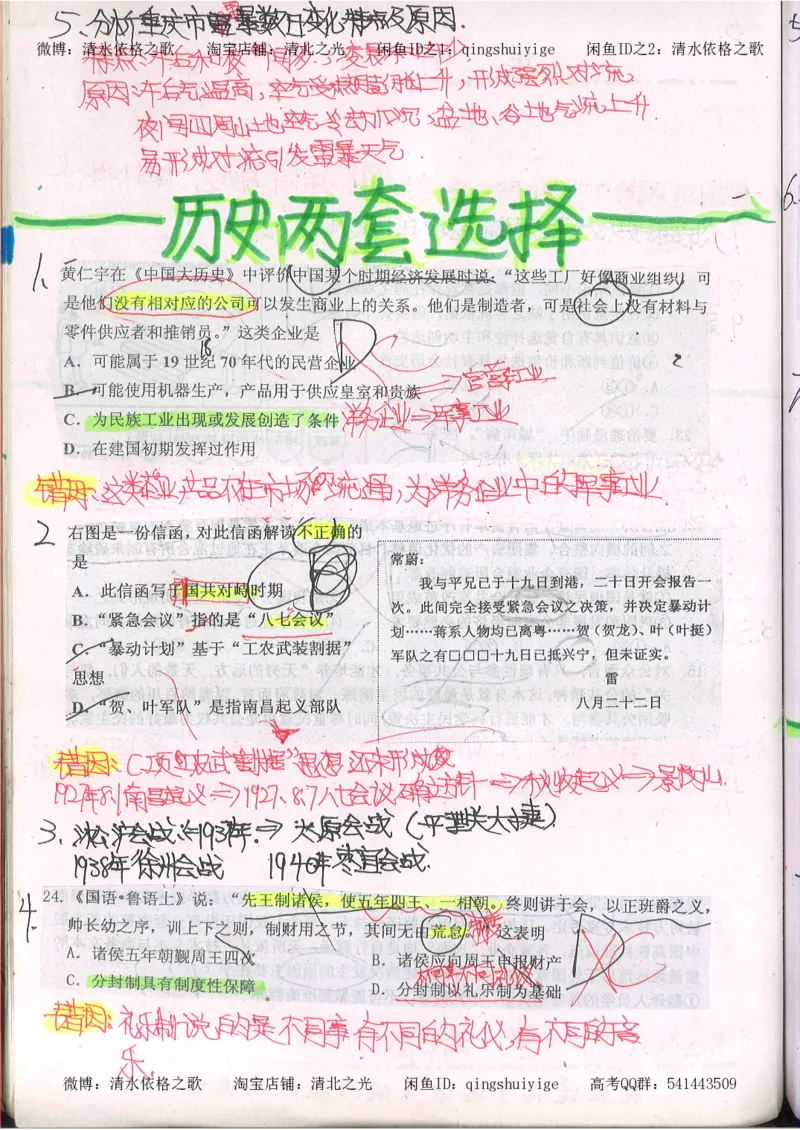 5、分析重庆市雷暴数日变化特点及原因.
微博：清水依格之歌 淘宝店铺：清北之光 闲鱼ID之1：qingshuiyige 闲鱼ID之2：清水依格之歌
原因:午后气温最高,空气受热膨胀上升,形成强烈对流.
夜间四周山地空气冷却下沉,盆地、谷地气流上升
易形成对流引发雷暴天气.
历史两套选择
1、黄仁宇在《中国大历史》中评价中国某个时期经济发展时说：“这些工厂好像商业组织，可
是他们没有相对应的公司可以发生商业上的关系。他们是制造者，可是社会上没有材料与
零件供应者和推销员。”这类企业是
A．可能属于 19 世纪 70 年代的民营企业
B．可能使用机器生产，产品用于供应皇室和贵族 → 官营手工业
C．为民族工业出现或发展创造了条件 洋务企业→军事工业
D．在建国初期发挥过作用
错因:这类企业产品不在市场流通,为洋务企业中的军事工业.
2 右图是一份信函，对此信函解读不正确的
是
A．此信函写于国共对峙时期
B．“紧急会议”指的是“八七会议”
C．“暴动计划”基于“工农武装割据”
思想
D．“贺、叶军队”是指南昌起义部队
常蔚：
我与平兄已于十九日到港，二十日开会报告一
次。此间完全接受紧急会议之决策，并决定暴动计
划……蒋系人物均已离粤……贺（贺龙）、叶（叶挺）
军队之有□□□十九日已抵兴宁，但未证实。
雷
八月二十二日
错因:C项“工农武装割据”思想还未形成
1927年8.1南昌起义⇒1927、8.7八七会议,确定方针⇒秋收起义→井冈山.
3、淞沪会战⇒1937年.⇒太原会战(平型关大捷)
1938年徐州会战 1940年枣宜会战.
4. 24. 《国语·鲁语上》说：“先王制诸侯，使五年四王、一相朝。终则讲于会，以正班爵之义，
帅长幼之序，训上下之则，制财用之节，其间无由荒怠。”这表明
A．诸侯五年朝觐周王四次 B．诸侯应向周王申报财产
C．分封制具有制度性保障 D．分封制以礼乐制为基础
错因:礼乐制说的是不同事有不同的礼仪,有不同的音
乐.
微博：清水依格之歌 淘宝店铺：清北之光 闲鱼ID：qingshuiyige 高考QQ群：541443509